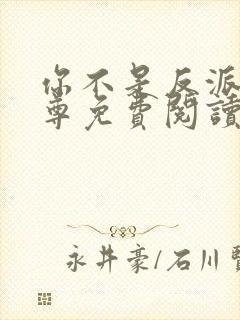 你不是反派
尊免費閱讀
永井豪/石川